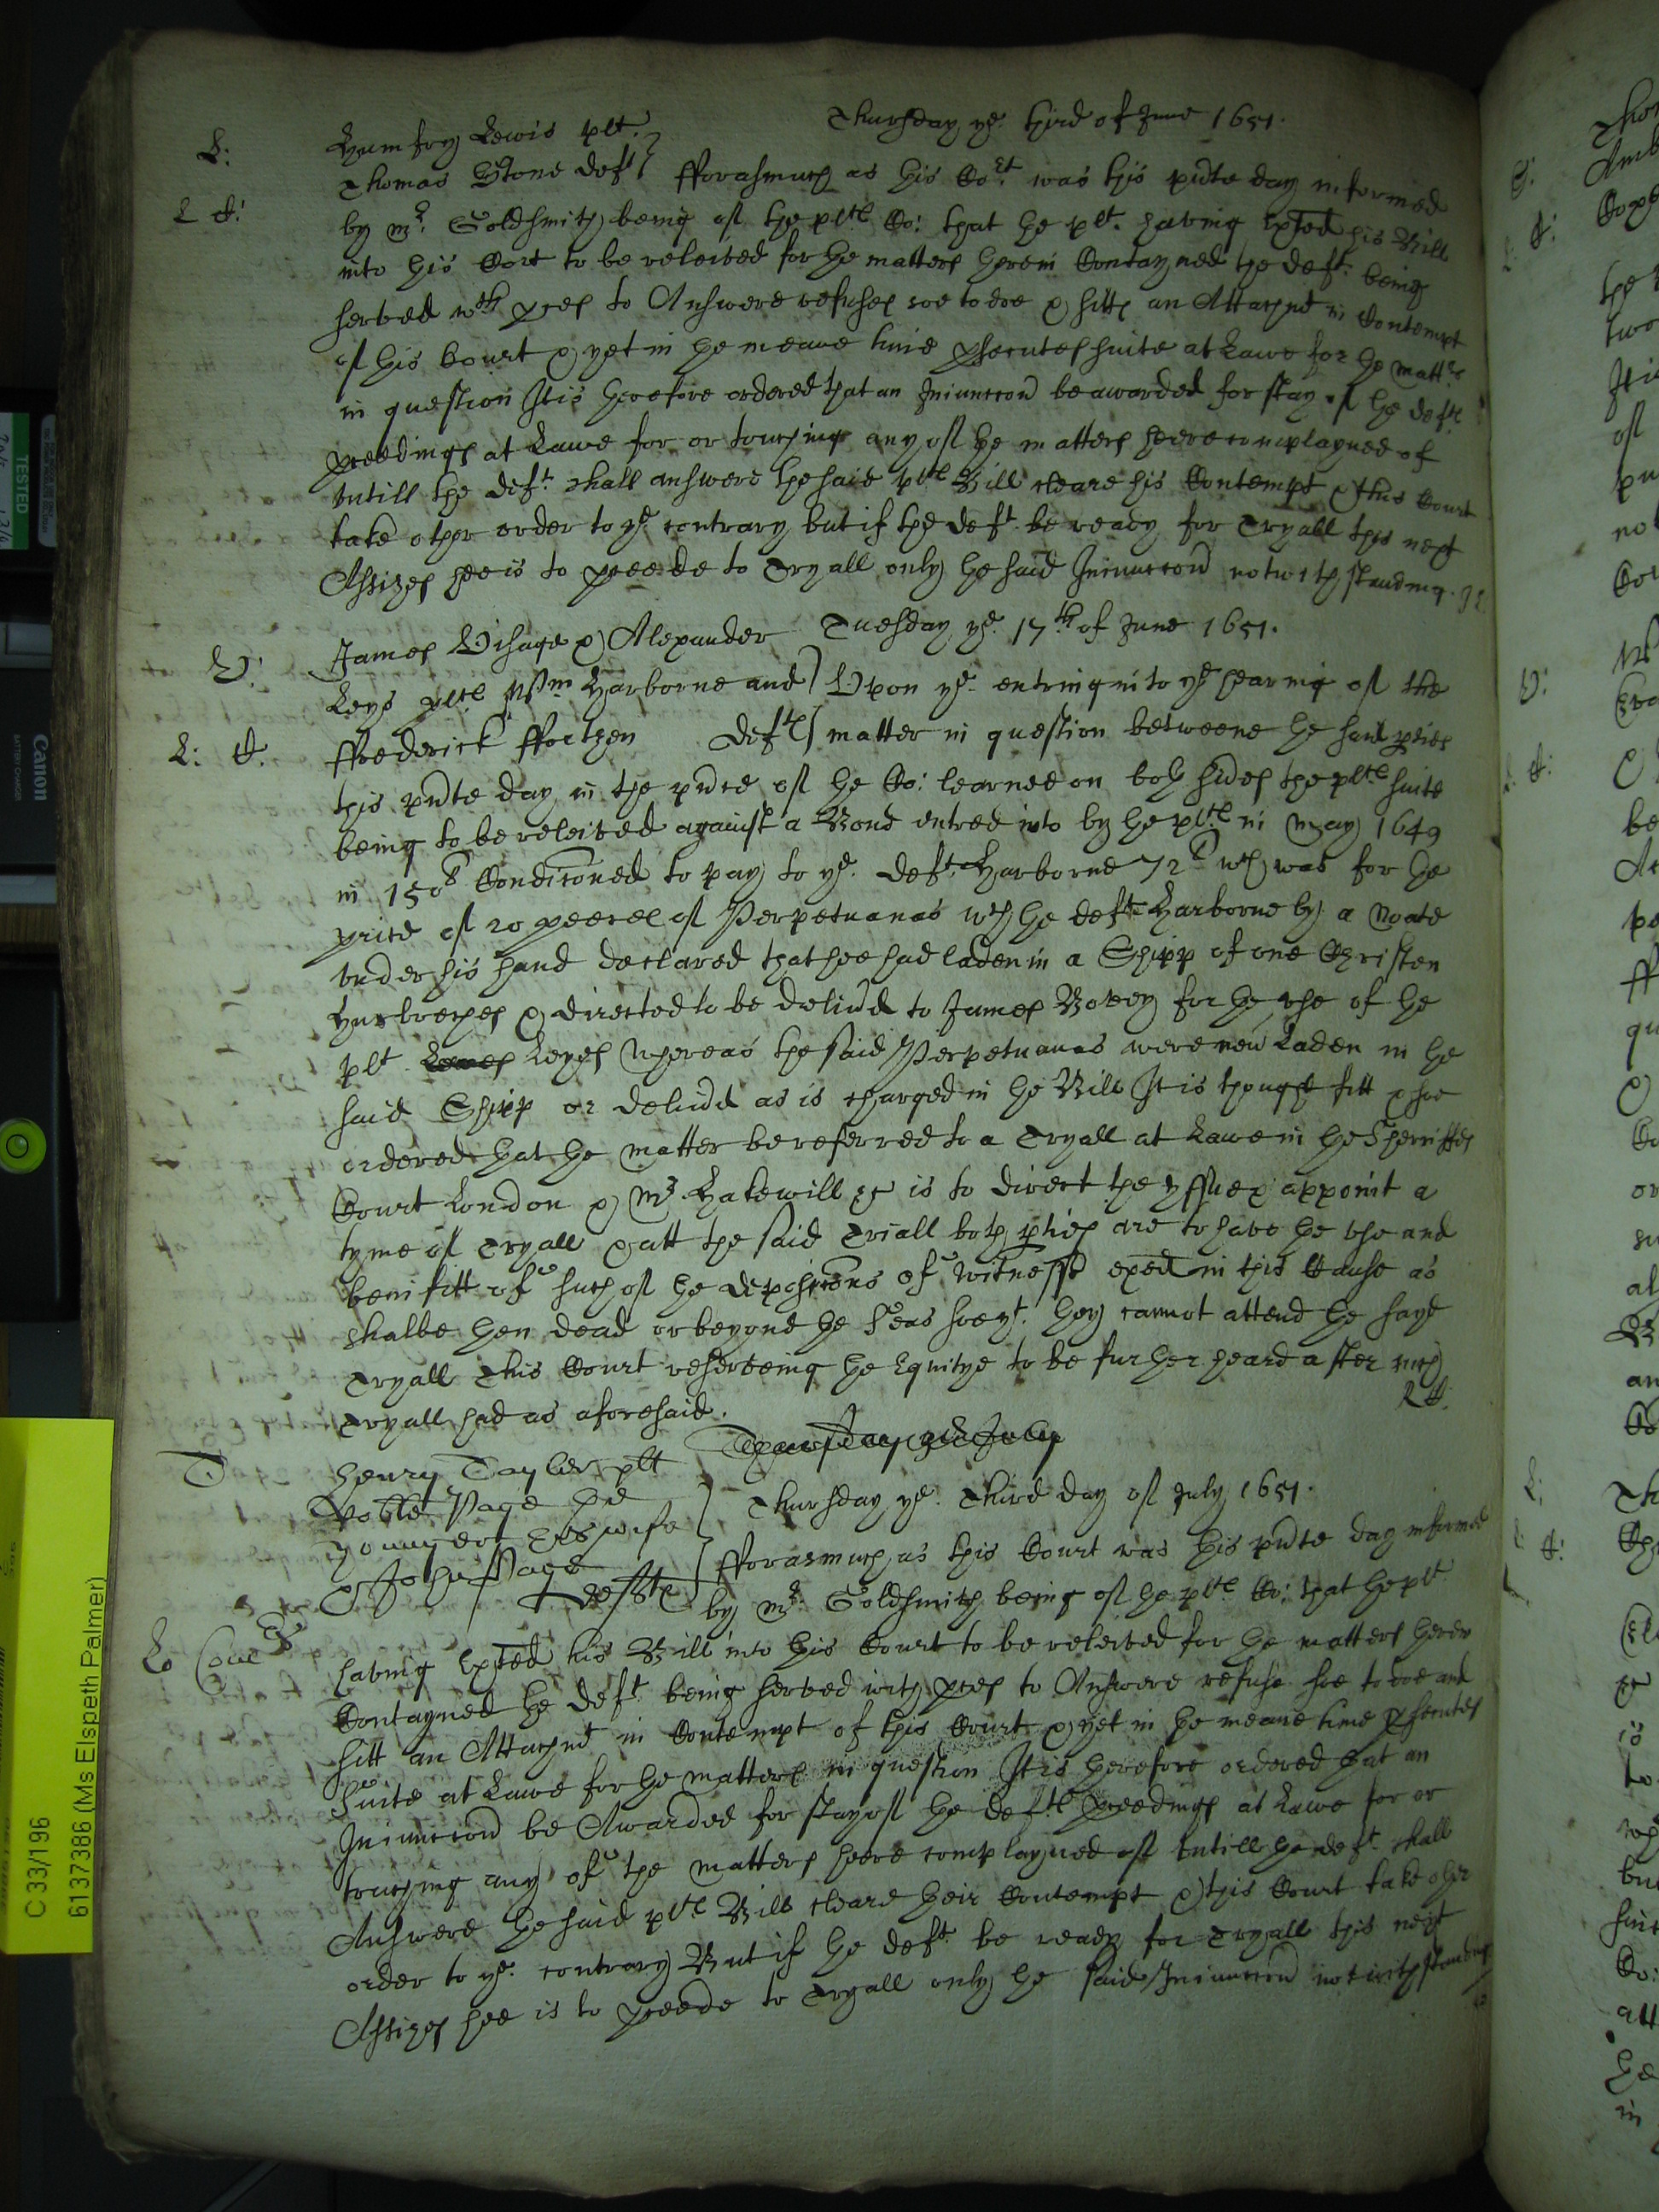 Thursday ye. third of June 1651.
L: Humfrey Lewis plt.
Thomas Stone deft fforasmuch as this Cort. was this pnte day informed
L A: by Mr. Goldsmith being of the pltes Co: that the plt. having exted his Bill
into this Cort to be releived for the matters therein Contayned the deft. being
served wth proces to Answere refuses soe to doe & sitts an Attachmt in Contempt
of this Court & yet in the meane time prosecutes suite at Lawe for the matters
in question It is therefore ordered that an Iniunccon be awarded for stay of the defts
proceedings at Lawe for or touching any of the matters heere complayned of
untill the deft. shall answere the said pltes Bill cleare his Contempt & this Court
take other order to ye. contrary but if the deft. be ready for Tryall this next
Assizes hee is to proceede to Tryall only the said Iniunccon notwithstanding.
Tuesday ye. 17th of June 1651.
V: James Visage & Alexander
Leys pltes Wm Harborne and Upon ye. entring into ye hearing of the
L: A. ffrederick ffortzen defts matter in question betweene the said pties
this pnte day in the pnce of the Co: learned on both sides the pltes suite
being to be releived against a Bond entred into by the pltes in May 1649
in 150l Condiconed to pay to ye. deft. Harborne 72l wch was for the
price of 20 peeces of Perpetuanas wch the deft Harborne by a Noate
under his hand declared that hee had laden in a Shipp of one Christen
& directed to be delivd to James Bovey for the use of the
plt Leyes Whereas the said Perpetuanas were nevr Laden in the
said Shipp or delivd as is charged in the Bill It is thought fitt & soe
ordered that the matter be referred to a Tryall at Lawe in the Sherriffes
Court London & Mr. Hakewill &c is to direct the yssue & appoint a
tyme of Tryall & att the said Triall both pties are to have the use and
benifitt of such of the depositions of witnesses exed in this Cause as
shalbe then dead or beyond the Seas soe yt. they cannot attend the said
Tryall This Court reserveing the Equitye to be further heard after such
Tryall had as aforesaid. R H.
Thursday 3rd July
T Henry Tayler plt
Thursday ye. Third day of July 1651.
Noble Page the
younger & his wife
& John Page defts fforasmuch as this Court was this pnte day informed
by Mr. Goldsmith being of the pltes Co: that the plt
having exted his Bill into this Court to be releived for the matters therein
Contayned the deft. being served with proces to Answere refuse soe to doe and
sitt an Attachmt in Contempt of this Court & yet in the meane time prosecutes
Suite at Lawe for the matters in question It is therefore ordered that an
Iniunccon be Awarded for stay of the defts proceedings at Lawe for or
touching any of the matters heere complayned of untill the deft. shall
Answere the said pltes Bill cleare their Contempt & this Court take other
order to ye. contrary But if the deft. be ready for Tryall this next
Assizes hee is to proceede to Tryall only the said Iniunccon notwithstanding
C 33/196
6137386 (Ms Elspeth Palmer)
TESTED
Canon
BATTERY CHARGER